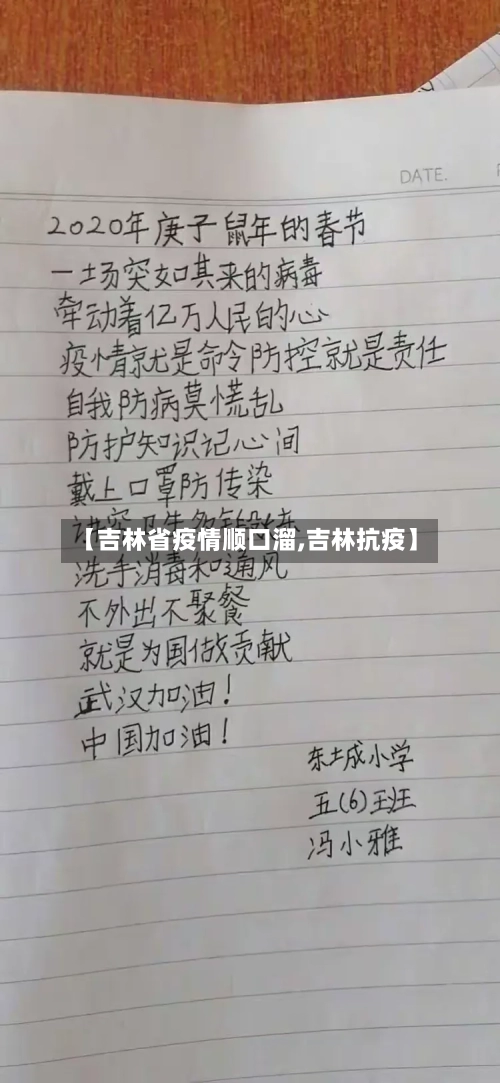 DATE.
2020年庚子鼠年的春节
一场突如其来的病毒
牵动着亿万人民的心
疫情就是命令防控就是责任
自我防病莫慌乱
防护知识记心间
戴上口罩防传染
【吉林省疫情顺口溜,吉林抗疫】
洗手消毒和通风
不外出不聚餐
就是为国做贡献
武汉加油!
中国加油!
东城小学
五(6)班
冯小雅